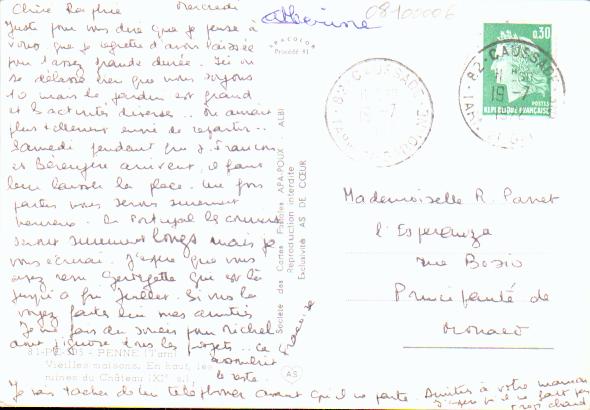 Chère Raphie Mercredi
Juste pour vous dire que je pense à
vous que je regrette d'avoir laissée
pour l'assez grande durée. Ici on
se délasse bien que nous soyons
10 mais le jardin est grand
et les activités diverses.. On aurait
plus tellement envie de repartir..
Samedi pendant que J. François
et Bérengère arrivent, il faut
leur laisser la place. Une fois
parties nous serons sûrement
heureux. Du Portugal le courrier
serait summum longs mais je
vous écrirai. J'espère que vous
avez revu Georgette qui est là
jusqu'à fin Juillet. Si vous la
voyez faites lui mes amitiés
Je me fais du souci pour Michel
dont j'ignore tous les projets.. ce
concours
le reste.
Je vais tacher de lui téléphoner avant qu'il ne parte. Amitiés à votre maman
J'espère qu'il ne fait pas
trop chaud
81-PE-305 - PENNE (Tarn)
Vieilles maisons. En haut, les
ruines du Château (XIe s.)
Société des Cartes Postales APA-POUX - ALBI
Reproduction interdite
Exclusivité AS DE CŒUR
AS
APACOLOR
Procédé 41
08100006
82-CAUSSADE
19-7
TARN-ET-GARONNE
0,30
POSTES
REPUBLIQUE FRANÇAISE
82-CAUSSADE
11 H
19-7
Mademoiselle R. Panet
l'Esperanza
rue Bosio
Principauté de
Monaco